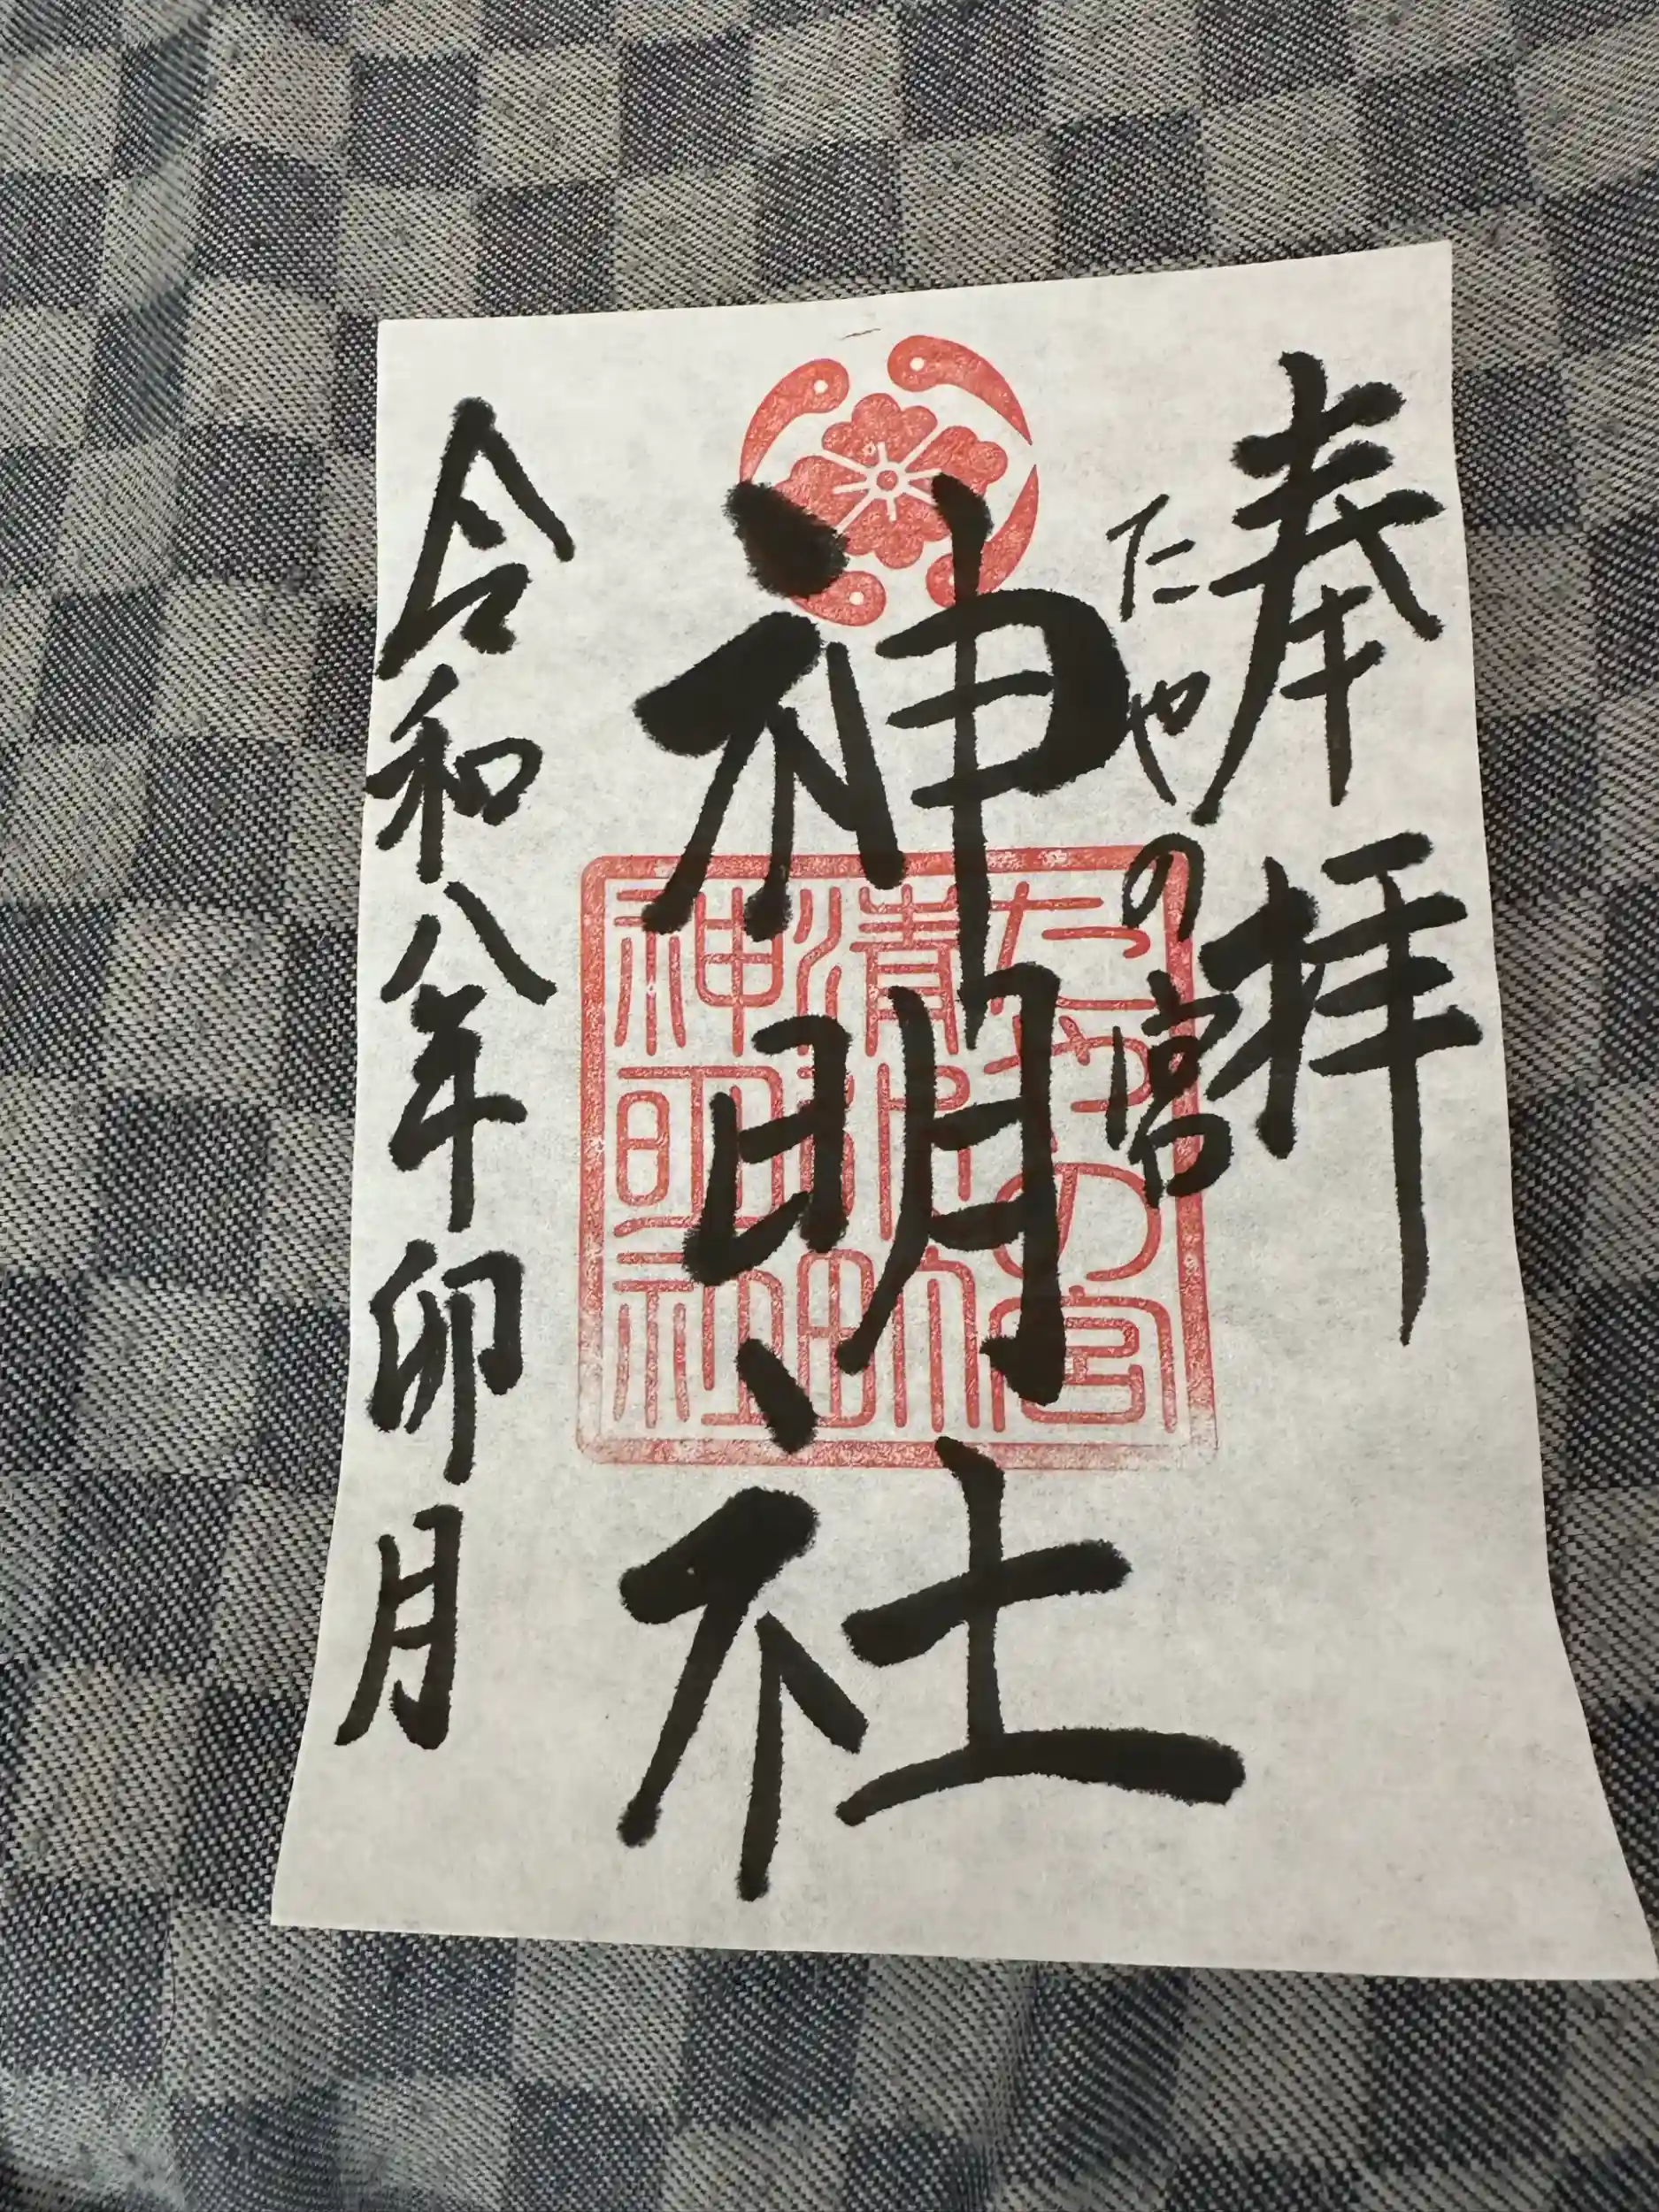 奉拝
たやの宮
神明社
令和八年卯月
たやの宮
清洲田
神明社